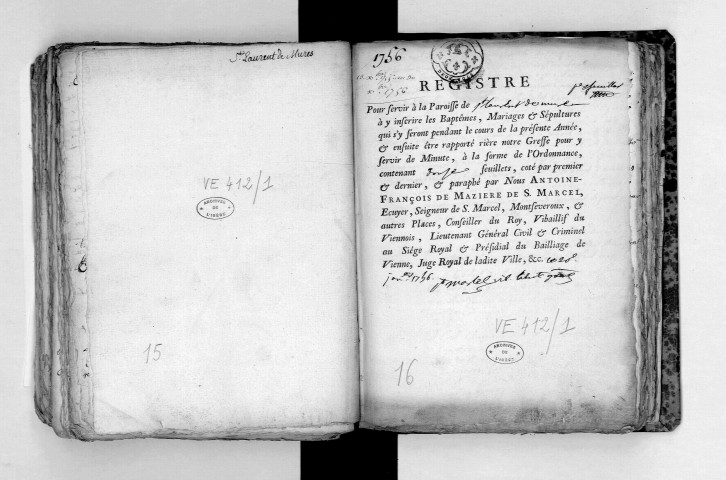 St Laurent de Mures
VE 412/1
ARCHIVES
DE
L'ISERE
15
1756
REGISTRE
Pour servir à la Paroisse de St laurent de mures
à y inserire les Baptêmes, Mariages & Sépultures
qui s'y seront pendant le cours de la présente Année,
& ensuite être rapporté rière notre Greffe pour y
servir de Minute, à la forme de l'Ordonnance,
contenant douze feuillets, coté par premier
& dernier, & paraphé par Nous ANTOINE-
FRANÇOIS DE MAZIERE DE S. MARCEL,
Ecuyer, Seigneur de S. Marcel, Montseveroux, &
autres Places, Conseiller du Roy, Vibaillif du
Viennois, Lieutenant Général Civil & Criminel
au Siége Royal & Présidial du Bailliage de
Vienne, Juge Royal de ladite Ville, &c.
1756
VE 412/1
ARCHIVES
DE
L'ISERE
16